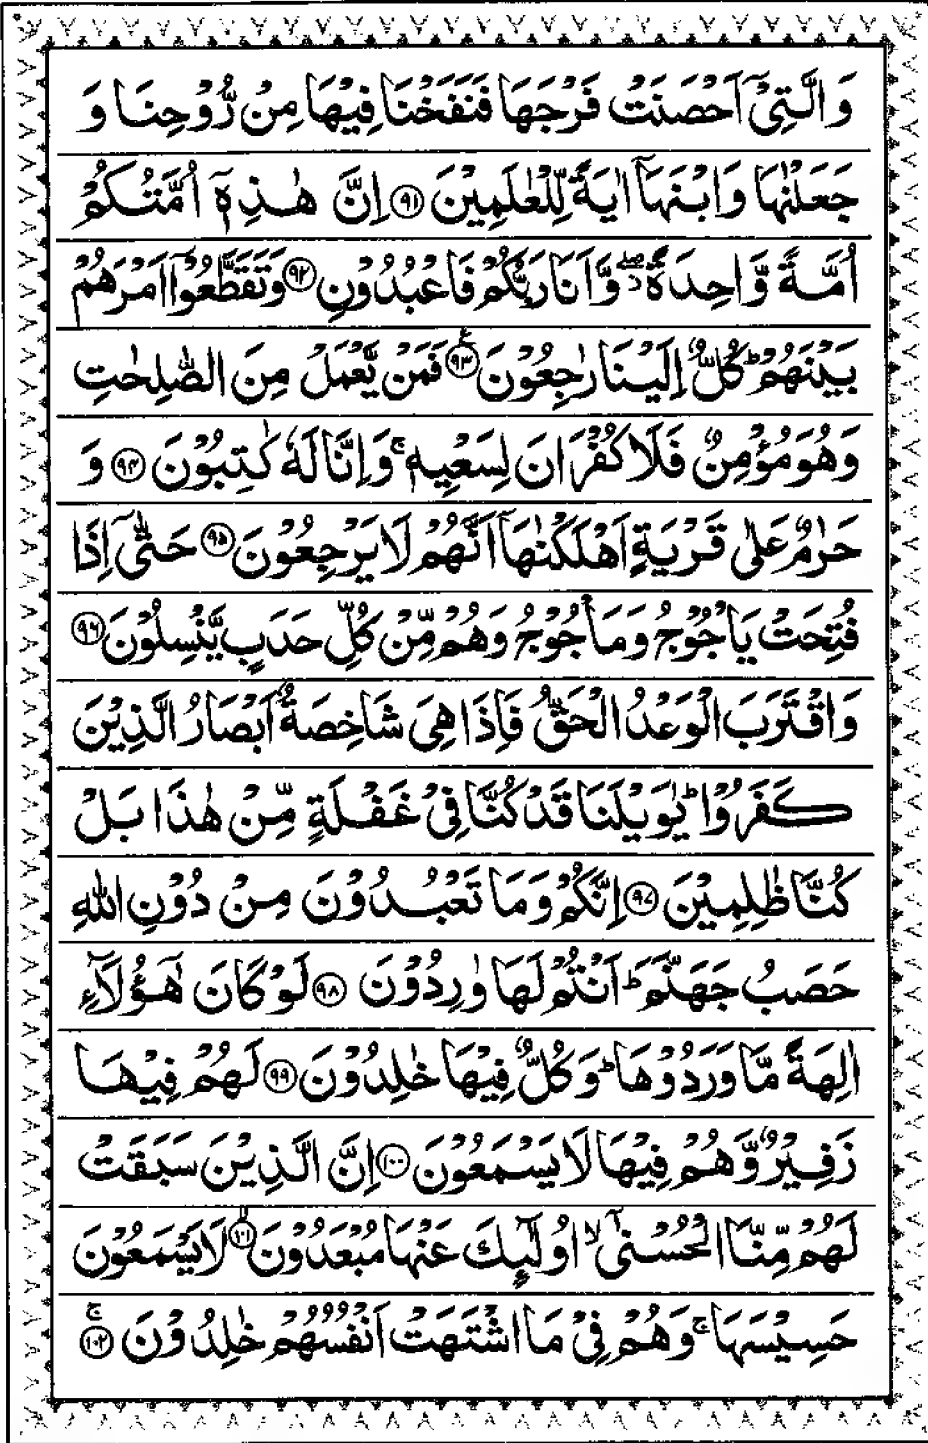 وَالَّتِیْۤ اَحْصَنَتْ فَرْجَهَا فَنَفَخْنَا فِیْهَا مِنْ رُّوْحِنَا وَ
جَعَلْنٰهَا وَابْنَهَاۤ اٰیَةً لِّلْعٰلَمِیْنَ ﴿۹۱﴾ اِنَّ هٰذِهٖۤ اُمَّتُكُمْ
اُمَّةً وَّاحِدَةً ۖ٘ وَّاَنَا رَبُّكُمْ فَاعْبُدُوْنِ ﴿۹۲﴾ وَتَقَطَّعُوْۤا اَمْرَهُمْ
بَیْنَهُمْ ؕ كُلٌّ اِلَیْنَا رٰجِعُوْنَ ﴿۹۳﴾ ع فَمَنْ یَّعْمَلْ مِنَ الصّٰلِحٰتِ
وَهُوَ مُؤْمِنٌ فَلَا كُفْرَانَ لِسَعْیِهٖ ۚ وَاِنَّا لَهٗ كٰتِبُوْنَ ﴿۹۴﴾ وَ
حَرٰمٌ عَلٰی قَرْیَةٍ اَهْلَكْنٰهَاۤ اَنَّهُمْ لَا یَرْجِعُوْنَ ﴿۹۵﴾ حَتّٰۤی اِذَا
فُتِحَتْ یَاْجُوْجُ وَمَاْجُوْجُ وَهُمْ مِّنْ كُلِّ حَدَبٍ یَّنْسِلُوْنَ ﴿۹۶﴾
وَاقْتَرَبَ الْوَعْدُ الْحَقُّ فَاِذَا هِیَ شَاخِصَةٌ اَبْصَارُ الَّذِیْنَ
كَفَرُوْا ؕ یٰوَیْلَنَا قَدْ كُنَّا فِیْ غَفْلَةٍ مِّنْ هٰذَا بَلْ
كُنَّا ظٰلِمِیْنَ ﴿۹۷﴾ اِنَّكُمْ وَمَا تَعْبُدُوْنَ مِنْ دُوْنِ اللّٰهِ
حَصَبُ جَهَنَّمَ ؕ اَنْتُمْ لَهَا وٰرِدُوْنَ ﴿۹۸﴾ لَوْ كَانَ هٰۤؤُلَآءِ
اٰلِهَةً مَّا وَرَدُوْهَا ؕ وَكُلٌّ فِیْهَا خٰلِدُوْنَ ﴿۹۹﴾ لَهُمْ فِیْهَا
زَفِیْرٌ وَّهُمْ فِیْهَا لَا یَسْمَعُوْنَ ﴿۱۰۰﴾ اِنَّ الَّذِیْنَ سَبَقَتْ
لَهُمْ مِّنَّا الْحُسْنٰۤی ۙ اُولٰٓئِكَ عَنْهَا مُبْعَدُوْنَ ﴿۱۰۱﴾ ۙ لَا یَسْمَعُوْنَ
حَسِیْسَهَا ۚ وَهُمْ فِیْ مَا اشْتَهَتْ اَنْفُسُهُمْ خٰلِدُوْنَ ﴿۱۰۲﴾ ۚ